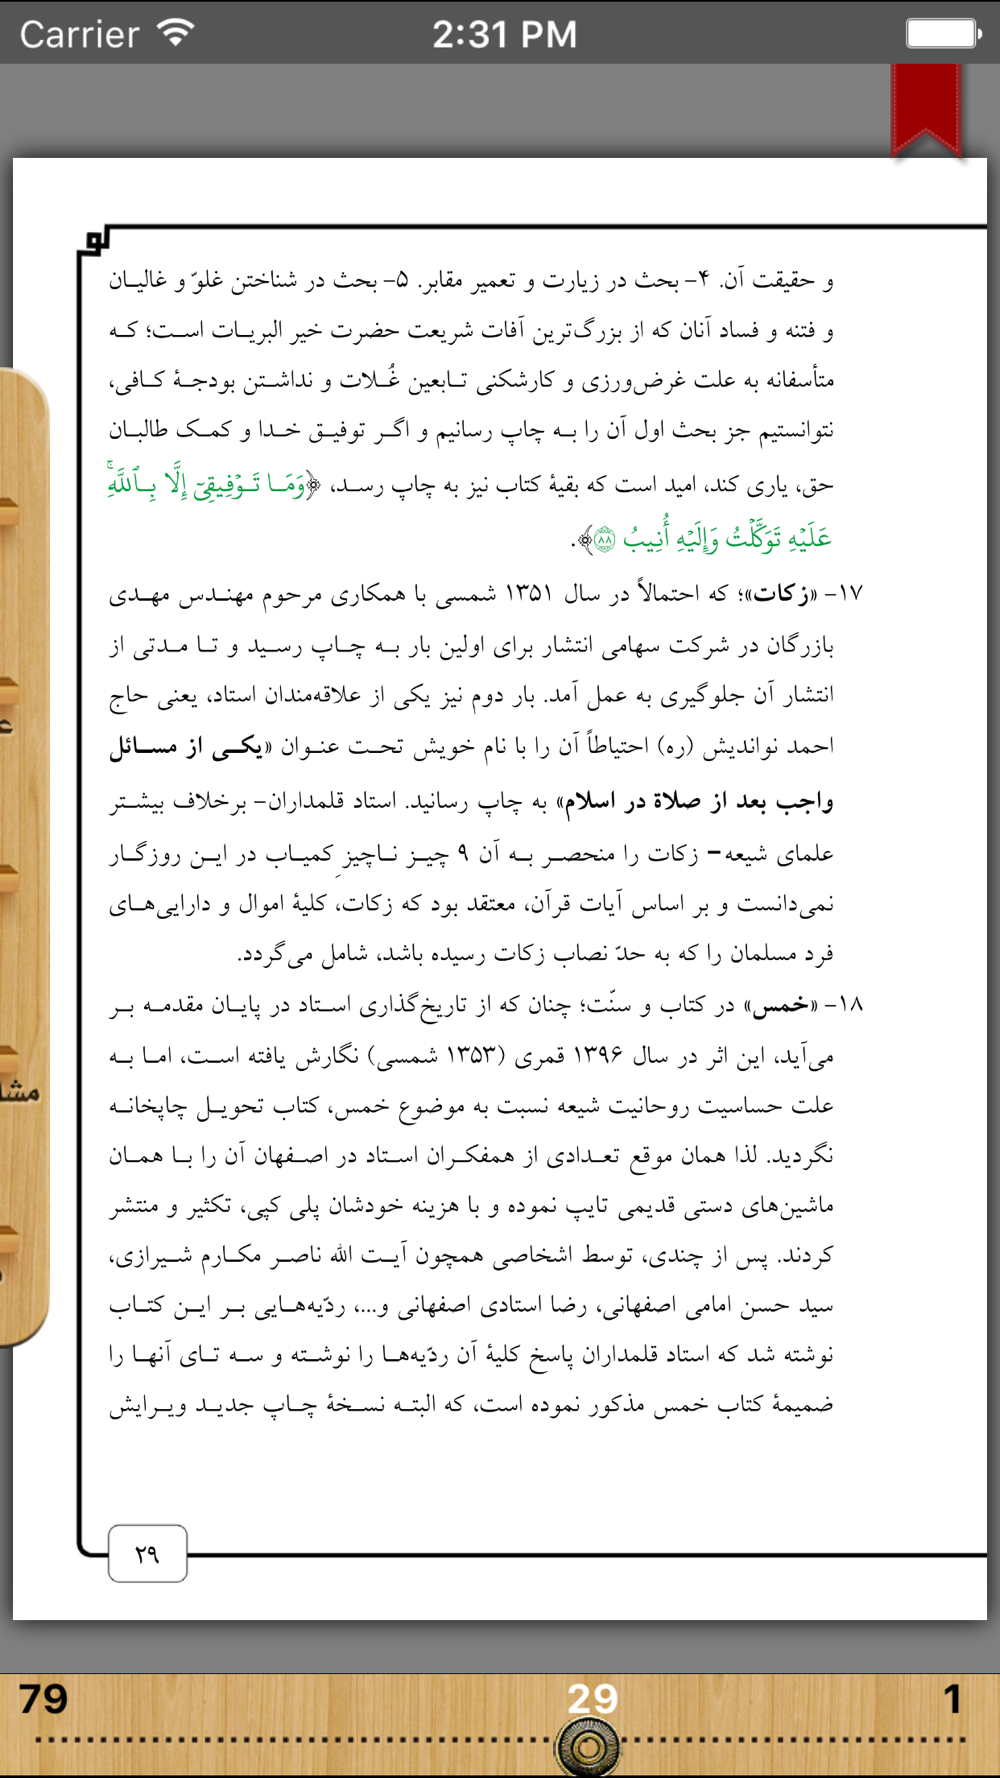 Carrier 2:31 PM
و حقیقت آن. ۴- بحث در زیارت و تعمیر مقابر. ۵- بحث در شناختن غلوّ و غالیان
و فتنه و فساد آنان که از بزرگ‌ترین آفات شریعت حضرت خیر البریات است؛ که
متأسفانه به علت غرض‌ورزی و کارشکنی تابعین غُلات و نداشتن بودجهٔ کافی،
نتوانستیم جز بحث اول آن را به چاپ رسانیم و اگر توفیق خدا و کمک طالبان
حق، یاری کند، امید است که بقیهٔ کتاب نیز به چاپ رسد، ﴿وَمَا تَوۡفِيقِيٓ إِلَّا بِٱللَّهِۚ
عَلَيۡهِ تَوَكَّلۡتُ وَإِلَيۡهِ أُنِيبُ ۸۸﴾.
۱۷- «زکات»؛ که احتمالاً در سال ۱۳۵۱ شمسی با همکاری مرحوم مهندس مهدی
بازرگان در شرکت سهامی انتشار برای اولین بار به چاپ رسید و تا مدتی از
انتشار آن جلوگیری به عمل آمد. بار دوم نیز یکی از علاقه‌مندان استاد، یعنی حاج
احمد نواندیش (ره) احتیاطاً آن را با نام خویش تحت عنوان «یکی از مسائل
واجب بعد از صلاة در اسلام» به چاپ رسانید. استاد قلمداران- برخلاف بیشتر
علمای شیعه- زکات را منحصر به آن ۹ چیز ناچیزِ کمیاب در این روزگار
نمی‌دانست و بر اساس آیات قرآن، معتقد بود که زکات، کلیهٔ اموال و دارایی‌های
فرد مسلمان را که به حدّ نصاب زکات رسیده باشد، شامل می‌گردد.
۱۸- «خمس» در کتاب و سنّت؛ چنان که از تاریخ‌گذاری استاد در پایان مقدمه بر
می‌آید، این اثر در سال ۱۳۹۶ قمری (۱۳۵۳ شمسی) نگارش یافته است، اما به
علت حساسیت روحانیت شیعه نسبت به موضوع خمس، کتاب تحویل چاپخانه
نگردید. لذا همان موقع تعدادی از همفکران استاد در اصفهان آن را با همان
ماشین‌های دستی قدیمی تایپ نموده و با هزینه خودشان پلی کپی، تکثیر و منتشر
کردند. پس از چندی، توسط اشخاصی همچون آیت الله ناصر مکارم شیرازی،
سید حسن امامی اصفهانی، رضا استادی اصفهانی و...، ردّیه‌هایی بر این کتاب
نوشته شد که استاد قلمداران پاسخ کلیهٔ آن ردّیه‌ها را نوشته و سه تای آنها را
ضمیمهٔ کتاب خمس مذکور نموده است، که البته نسخهٔ چاپ جدید ویرایش
۲۹
79 29 1